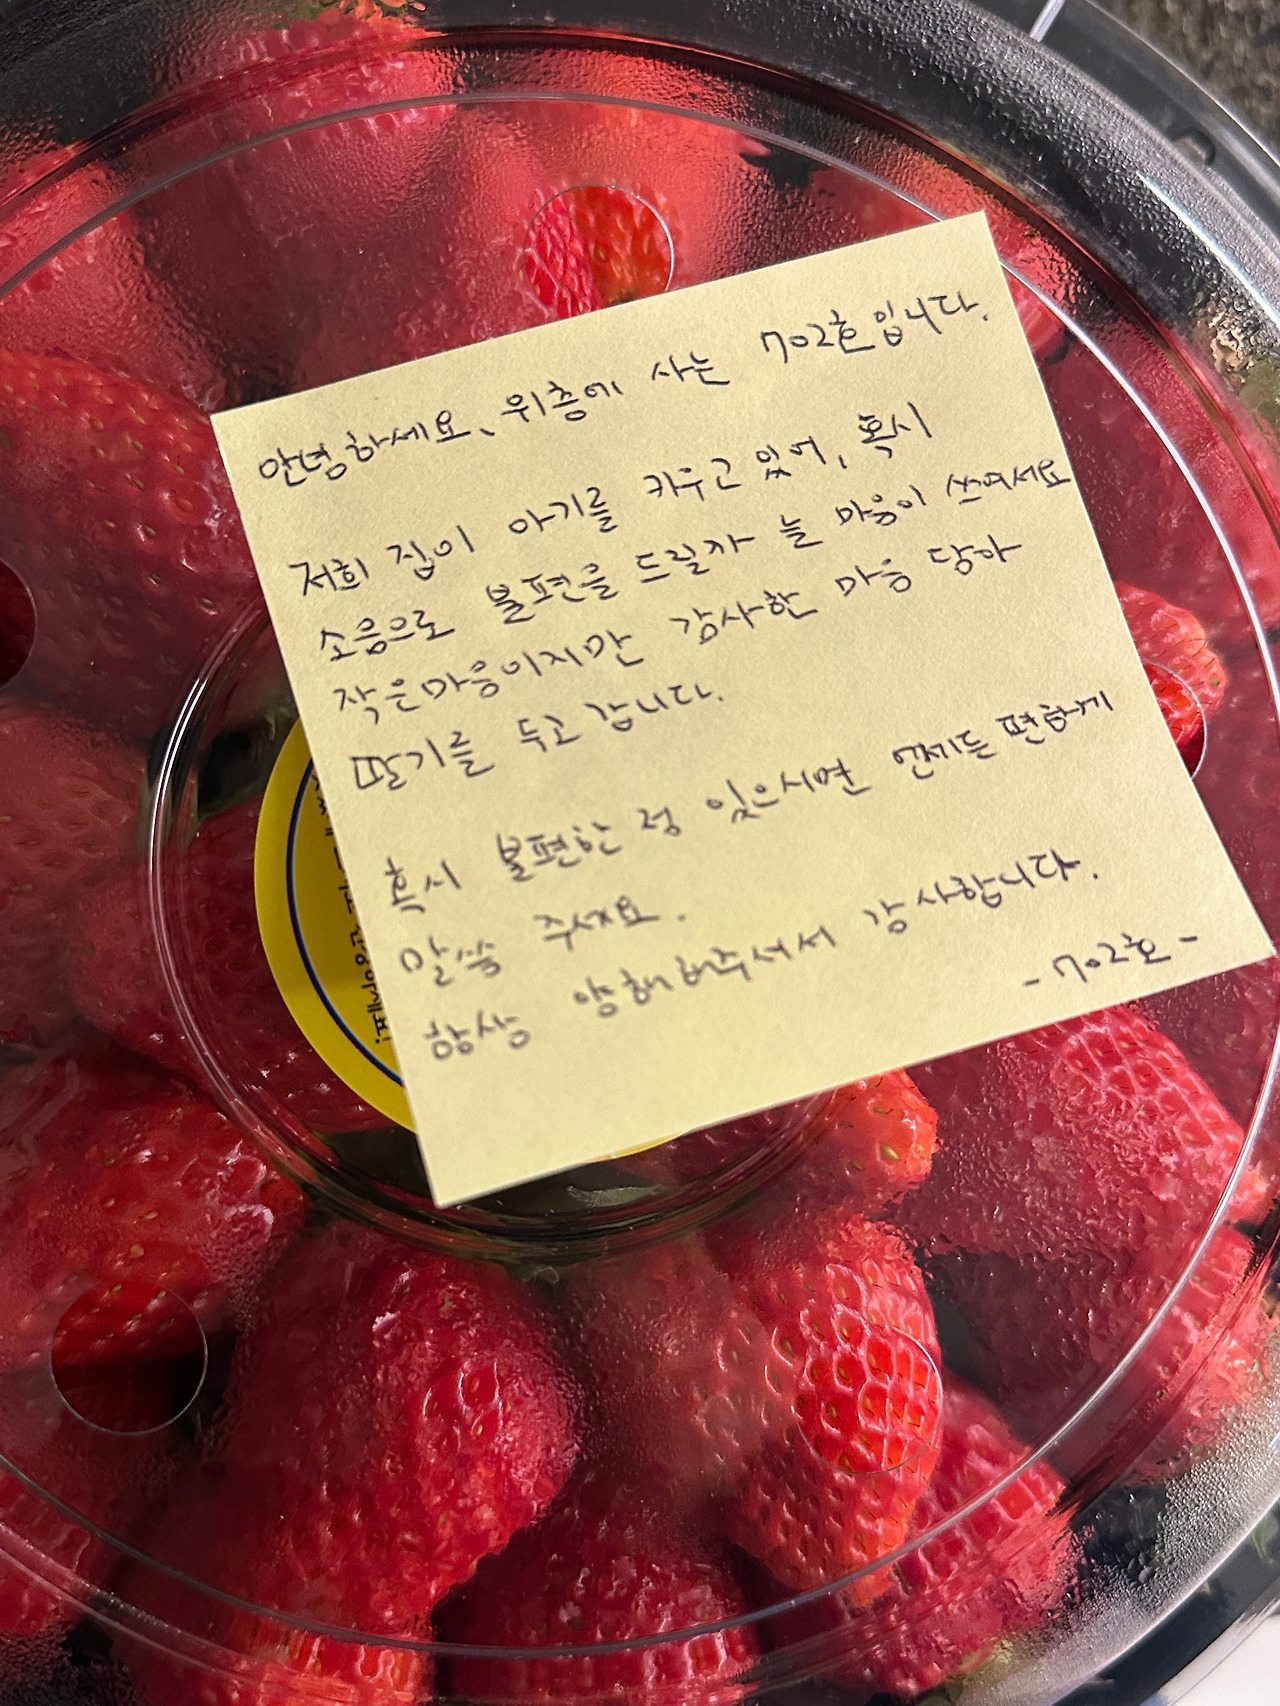 안녕하세요, 위층에 사는 702호입니다.
저희 집이 아기를 키우고 있어, 혹시
소음으로 불편을 드릴까 늘 마음이 쓰여서요
작은마음이지만 감사한 마음 담아
딸기를 두고 갑니다.
혹시 불편한 점 있으시면 언제든 편하게
말씀 주세요.
항상 양해해주셔서 감사합니다.
-702호-